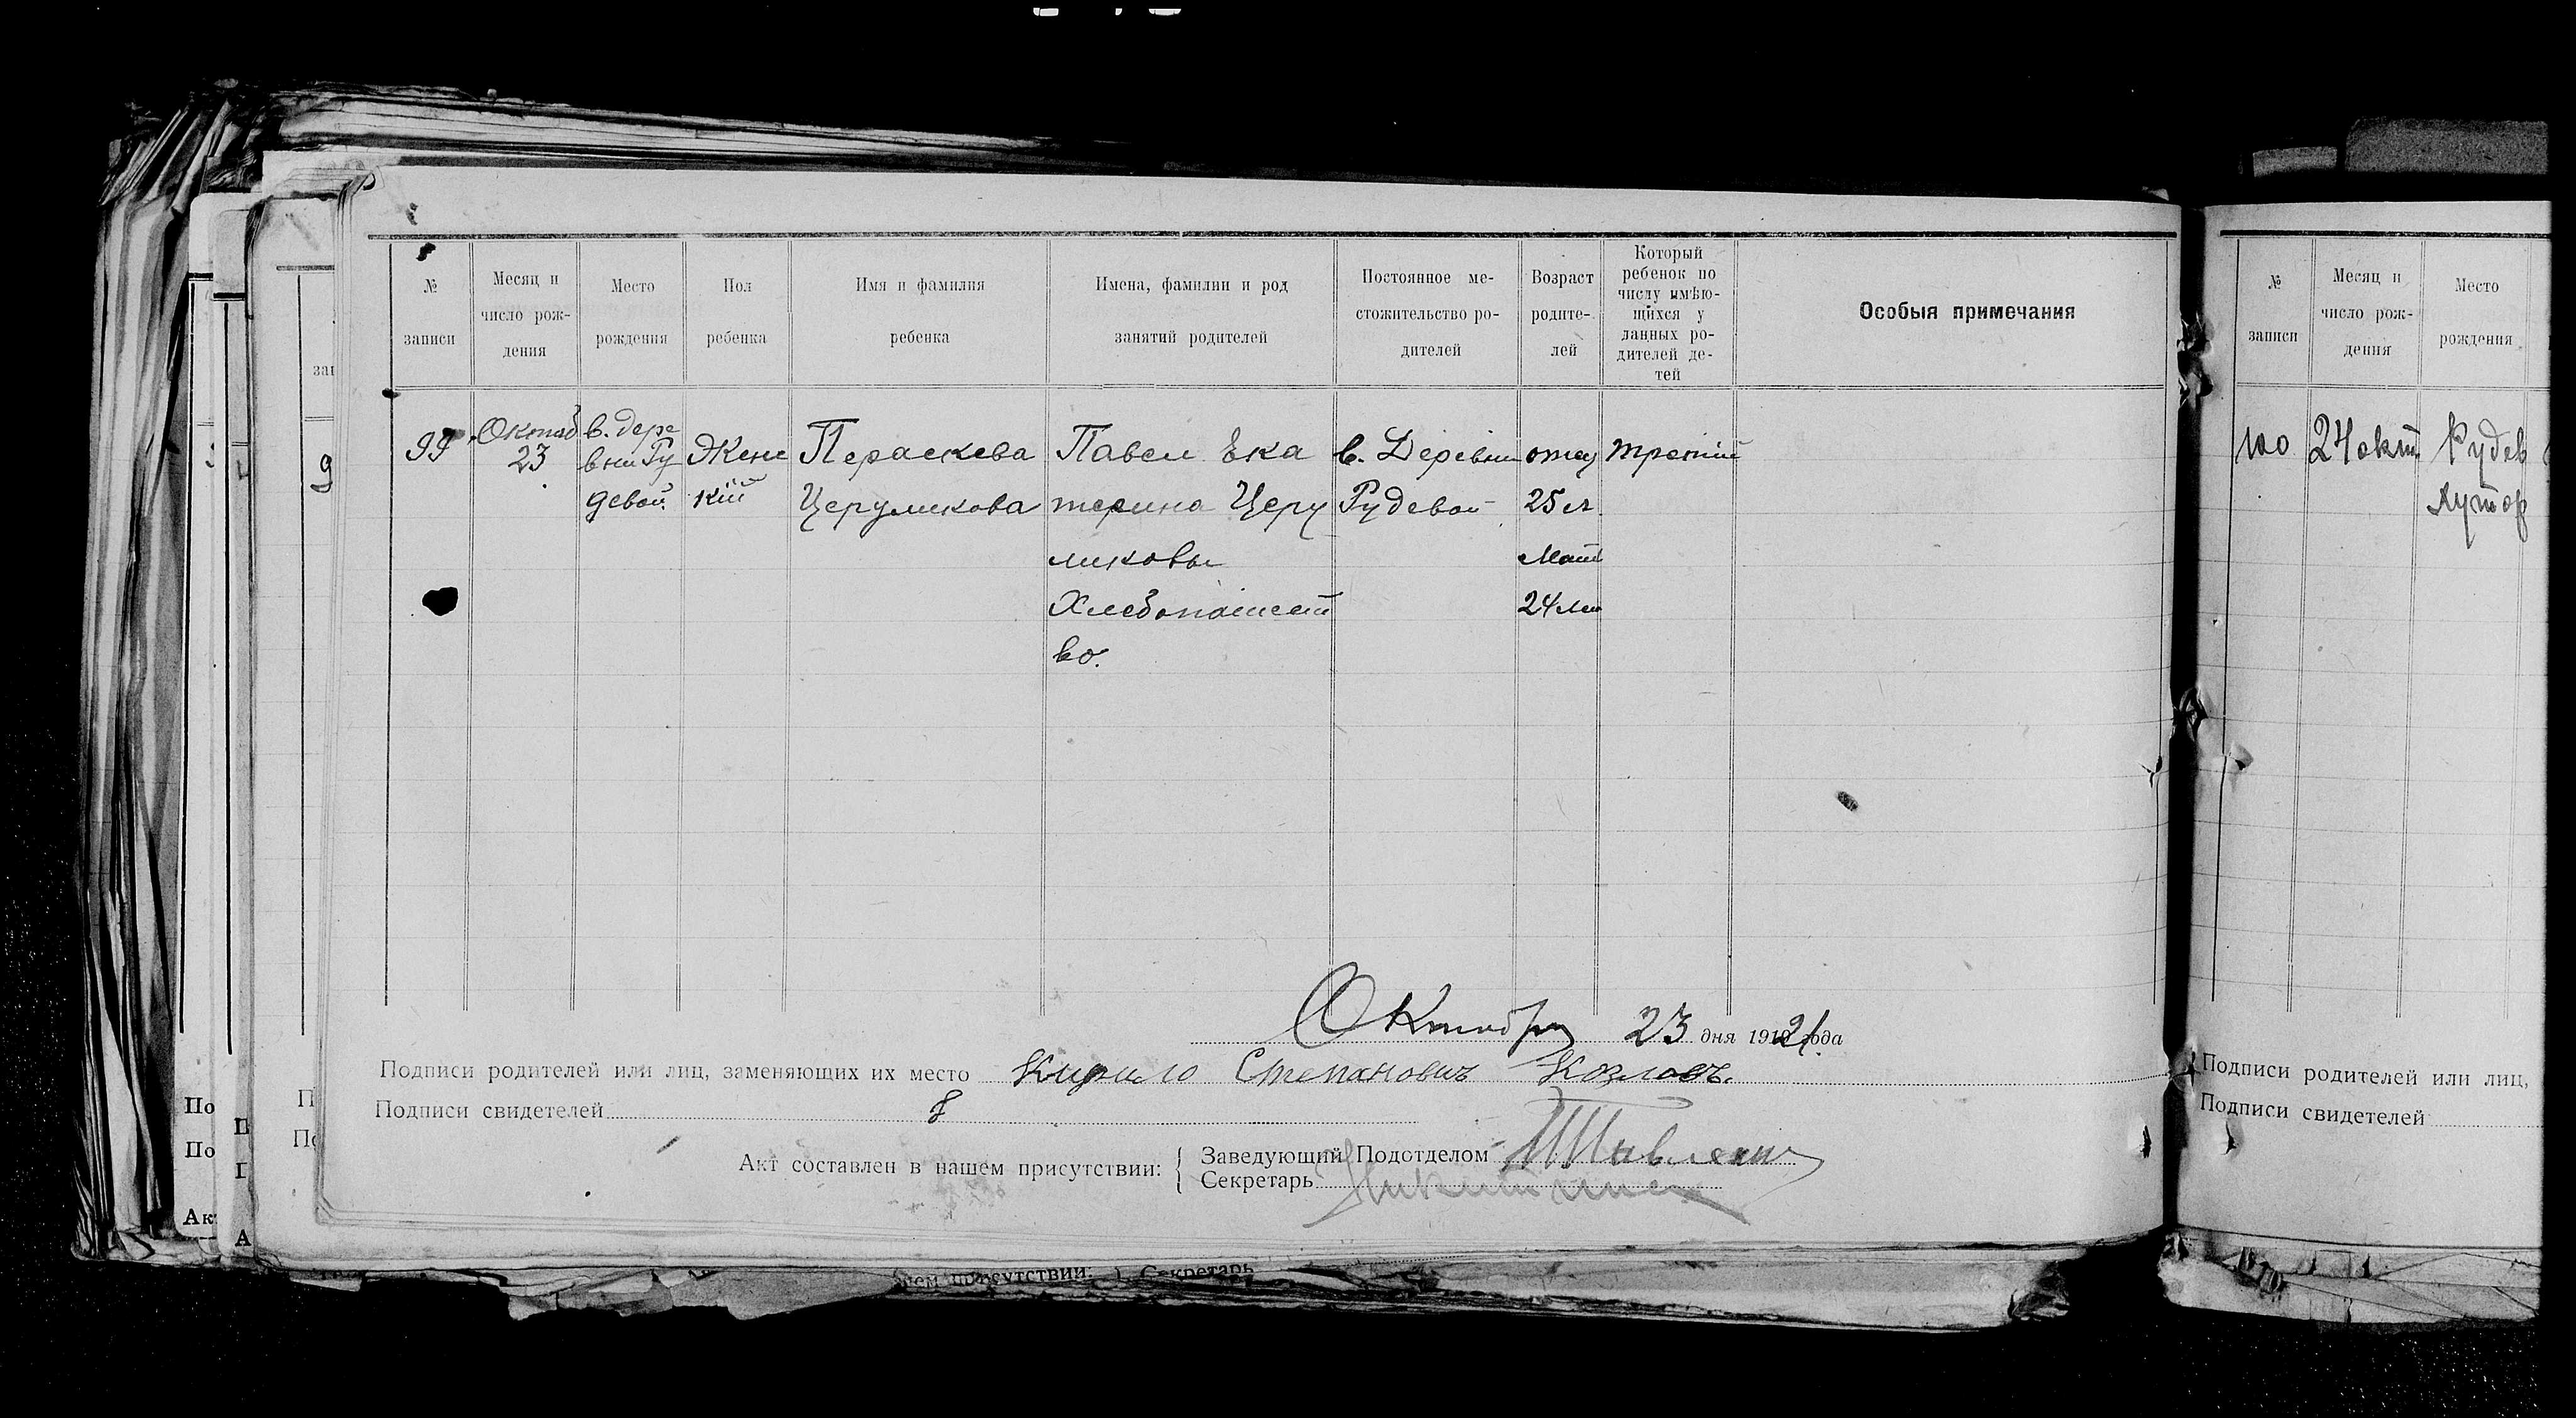 № записи
Месяц и число рождения
Место рождения
Пол ребенка
Имя и фамилия ребенка
Имена, фамилии и род занятий родителей
Постоянное местожительство родителей
Возраст родителей
Который ребенок по числу имѣющихся у данных родителей детей
Особыя примечания
99
Октяб
23
в. дере
вни Ру
девой.
Женс
кій
Пераскева
Церуликова
Павел Ека
терина Церу
ликовы
Хлебопашест
во.
в. Деревни
Рудевой
отец
25 л
Мат
24 лет
третій
Октября 23 дня 1921 года
Подписи родителей или лиц, заменяющих их место Кирило Степановичъ Козловъ.
Подписи свидетелей
Акт составлен в нашем присутствии:
Заведующий Подотделом
Секретарь
№ записи
Месяц и число рождения
Место рождения
100
24 окт
Рудев
Хутор
Подписи родителей или лиц,
Подписи свидетелей
По
По
Ак
нем присутствии: Секретарь